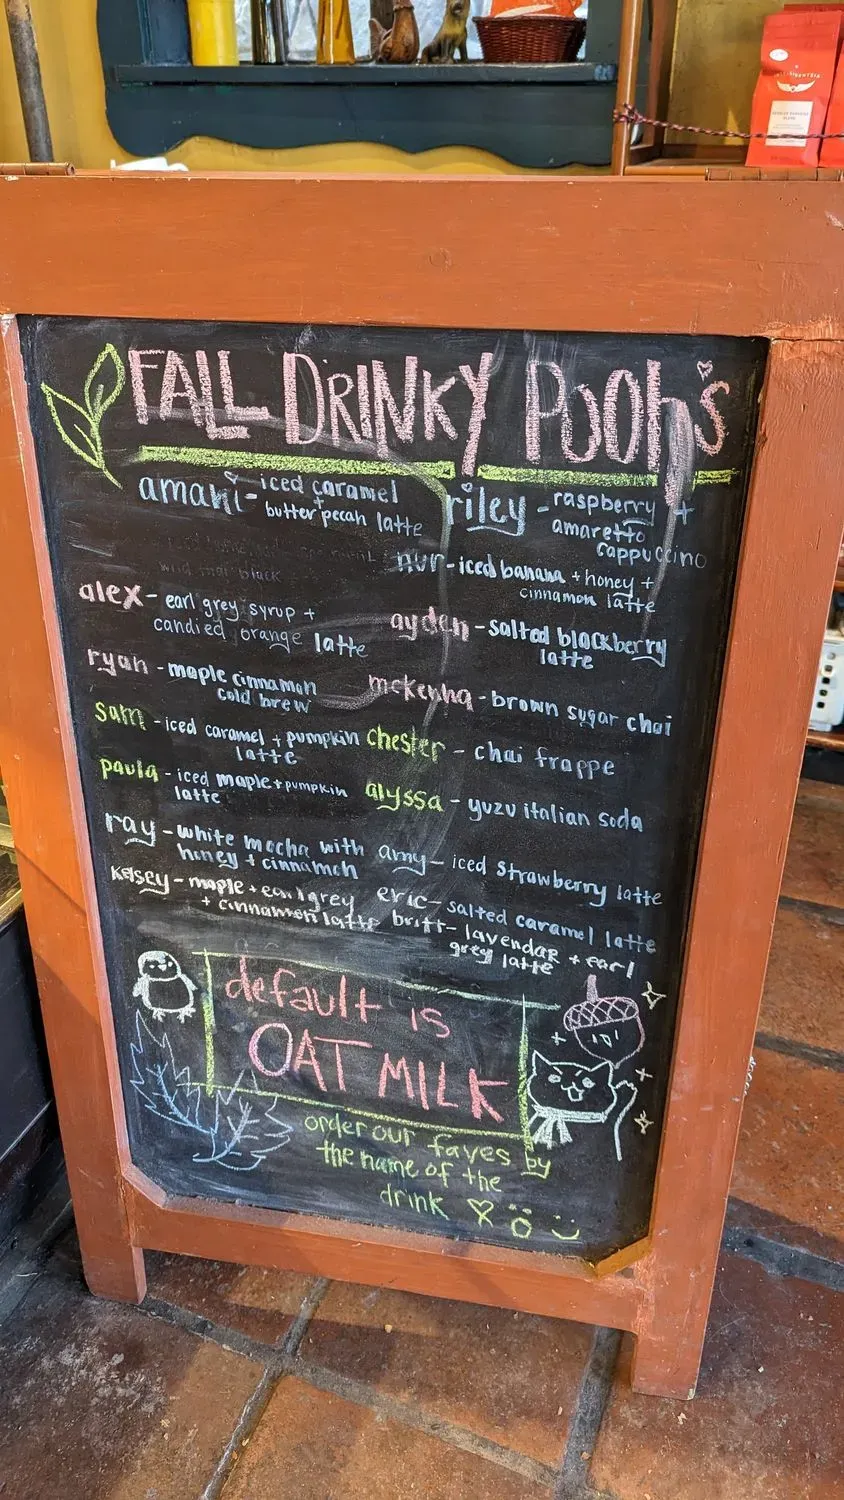 FALL DRINKY POOh's
amani - iced caramel
+
butter pecan latte
alex - earl grey syrup +
candied orange latte
ryan - maple cinnamon
cold brew
sam - iced caramel + pumpkin
latte
paula - iced maple + pumpkin
latte
ray - white mocha with
honey + cinnamon
kelsey - maple + earl grey
+ cinnamon latte
riley - raspberry +
amaretto
cappuccino
nur - iced banana + honey +
cinnamon latte
ayden - salted blackberry
latte
mckenna - brown sugar chai
chester - chai frappe
alyssa - yuzu italian soda
amy - iced strawberry latte
eric - salted caramel latte
britt - lavendar + earl
grey latte
default is
OAT MILK
order our faves by
the name of the
drink